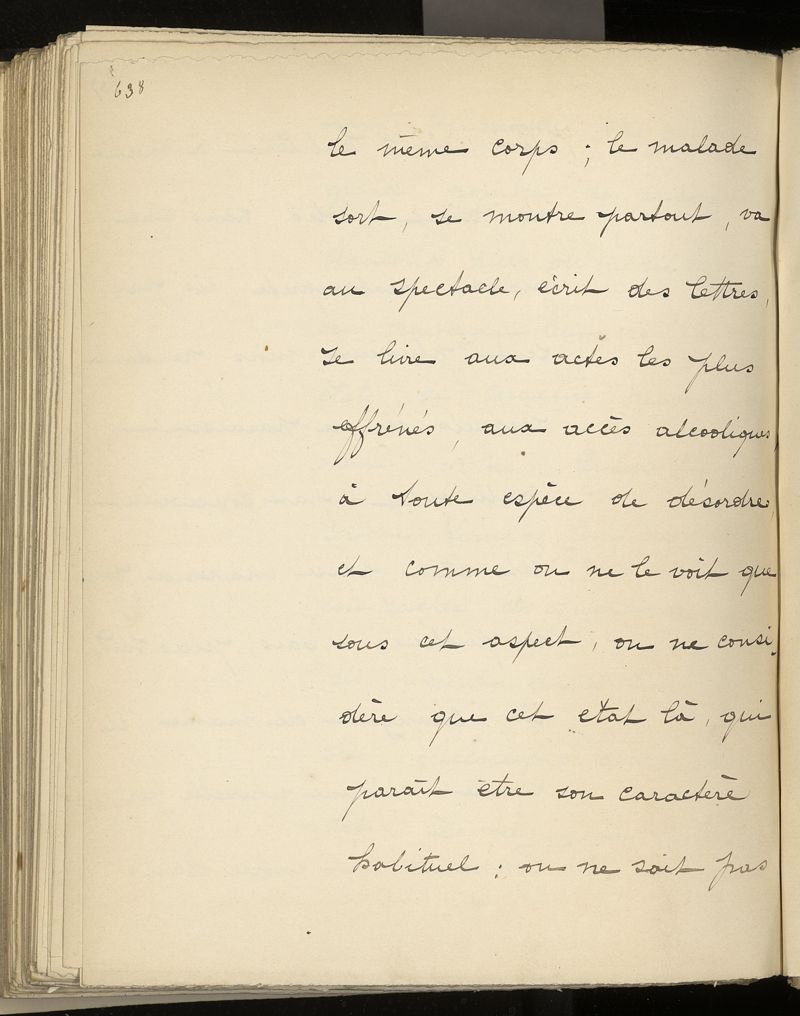 638
le même corps ; le malade
sort, se montre partout, va
au spectacle, écrit des lettres,
se livre aux actes les plus
effrénés, aux accès alcooliques,
à toute espèce de désordre,
et comme on ne le voit que
sous cet aspect, on ne consi-
dère que cet état là, qui
paraît être son caractère
habituel : on ne sait pas